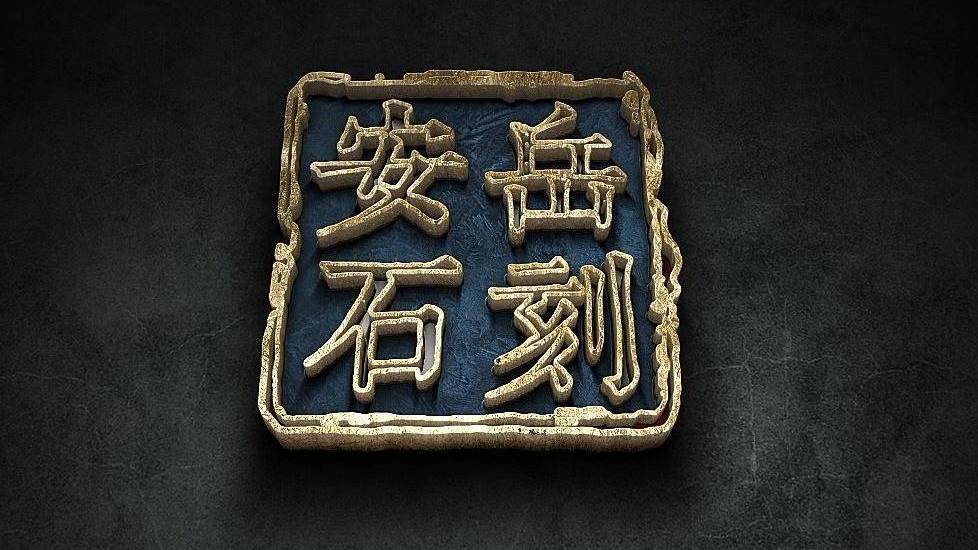 安岳
石刻